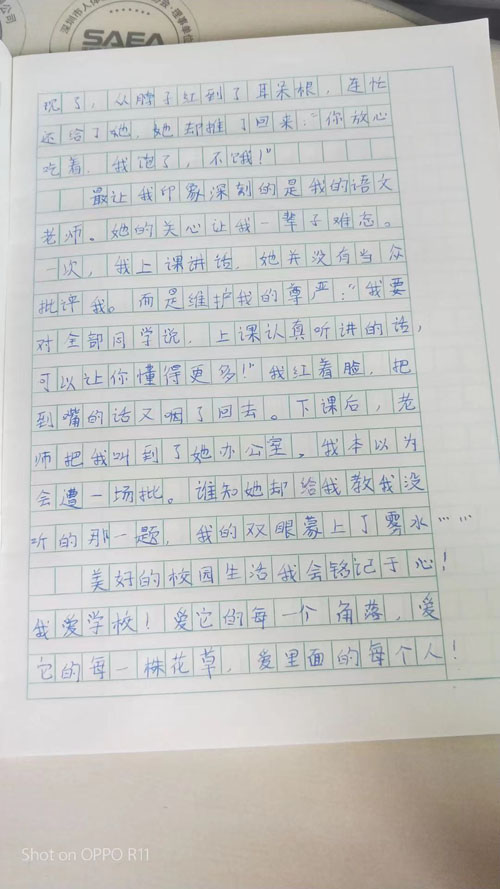 深圳市人体
SAEA
会·理事单位
现了，从脖子红到了耳朵根，连忙
还给了她，她却推了回来：“你放心
吃着，我饱了，不饿！”
最让我印象深刻的是我的语文
老师。她的关心让我一辈子难忘。
一次，我上课讲话，她并没有当众
批评我。而是维护我的尊严：“我要
对全部同学说，上课认真听讲的话，
可以让你懂得更多！”我红着脸，把
到嘴的话又咽了回去。下课后，老
师把我叫到了她办公室，我本以为
会遭一场批。谁知她却给我教我没
听的那一题，我的双眼蒙上了雾水……
美好的校园生活我会铭记于心！
我爱学校！爱它的每一个角落，爱
它的每一株花草，爱里面的每个人！
Shot on OPPO R11